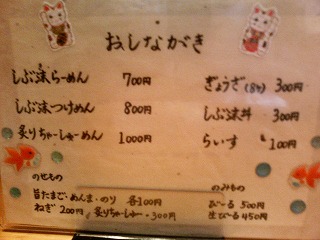 おしながき
しぶ沫らーめん 700円
しぶ沫つけめん 800円
炙りちゃーしゅーめん 1000円
ぎょうざ(8ケ) 300円
しぶ沫丼 300円
らいす 100円
のせもの
旨たまご・めんま・のり 各100円
ねぎ 200円 炙りちゃーしゅー・300円
のみもの
びーる 500円
生びーる 450円